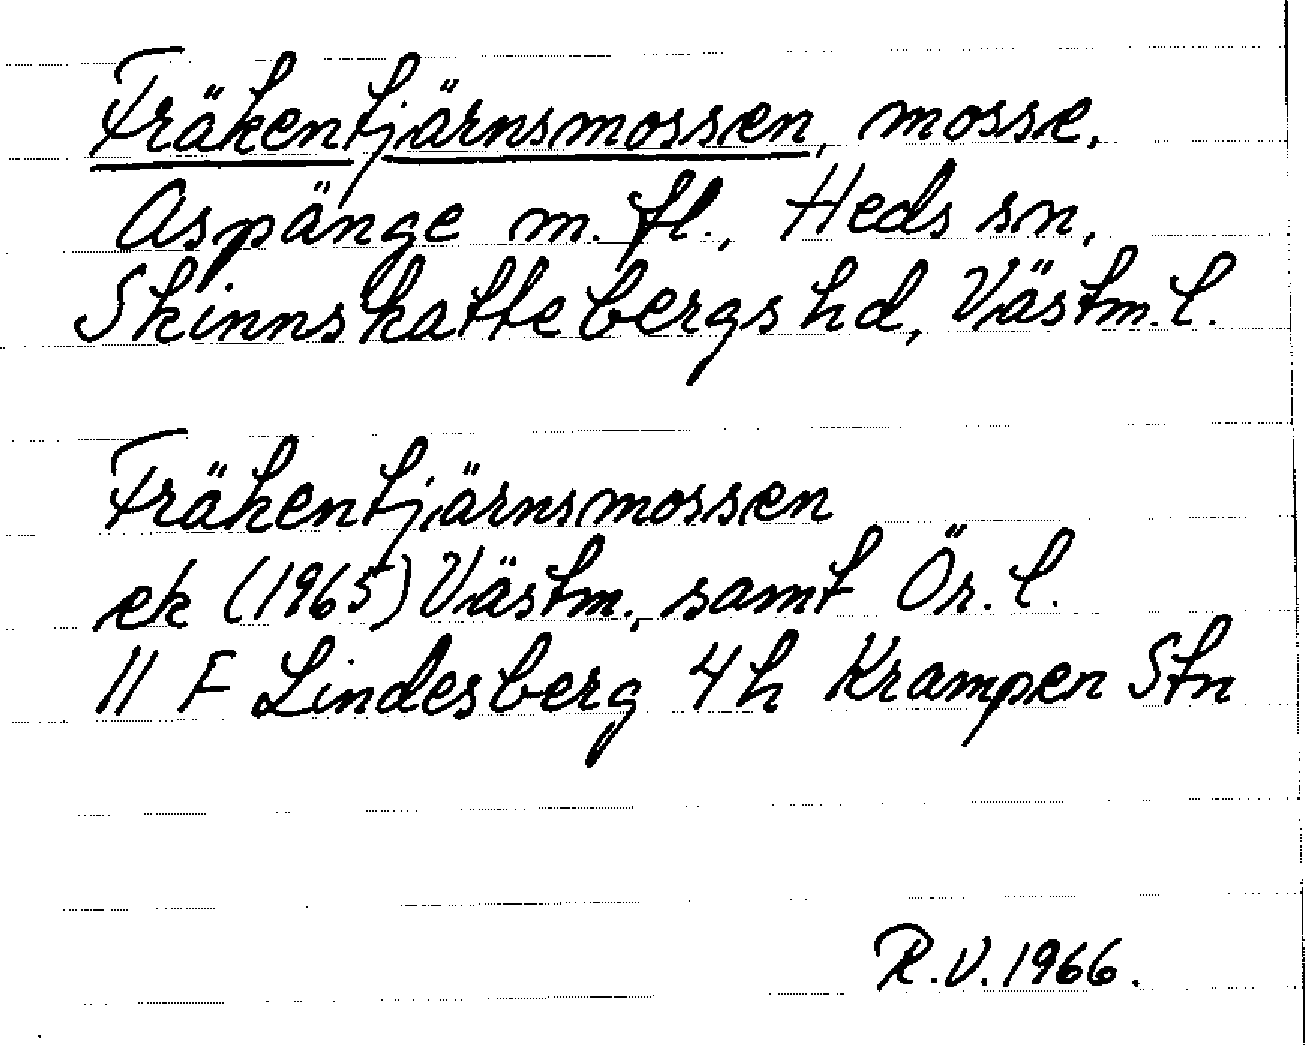 Fräkentjärnsmossen, mosse,
Aspänge m. fl., Heds sn,
Skinnskattebergs hd, Västm. l.
Fräkentjärnsmossen
ek (1965) Västm., samt Ör. l.
11 F Lindesberg 4h Krampen Stn
R.V. 1966.